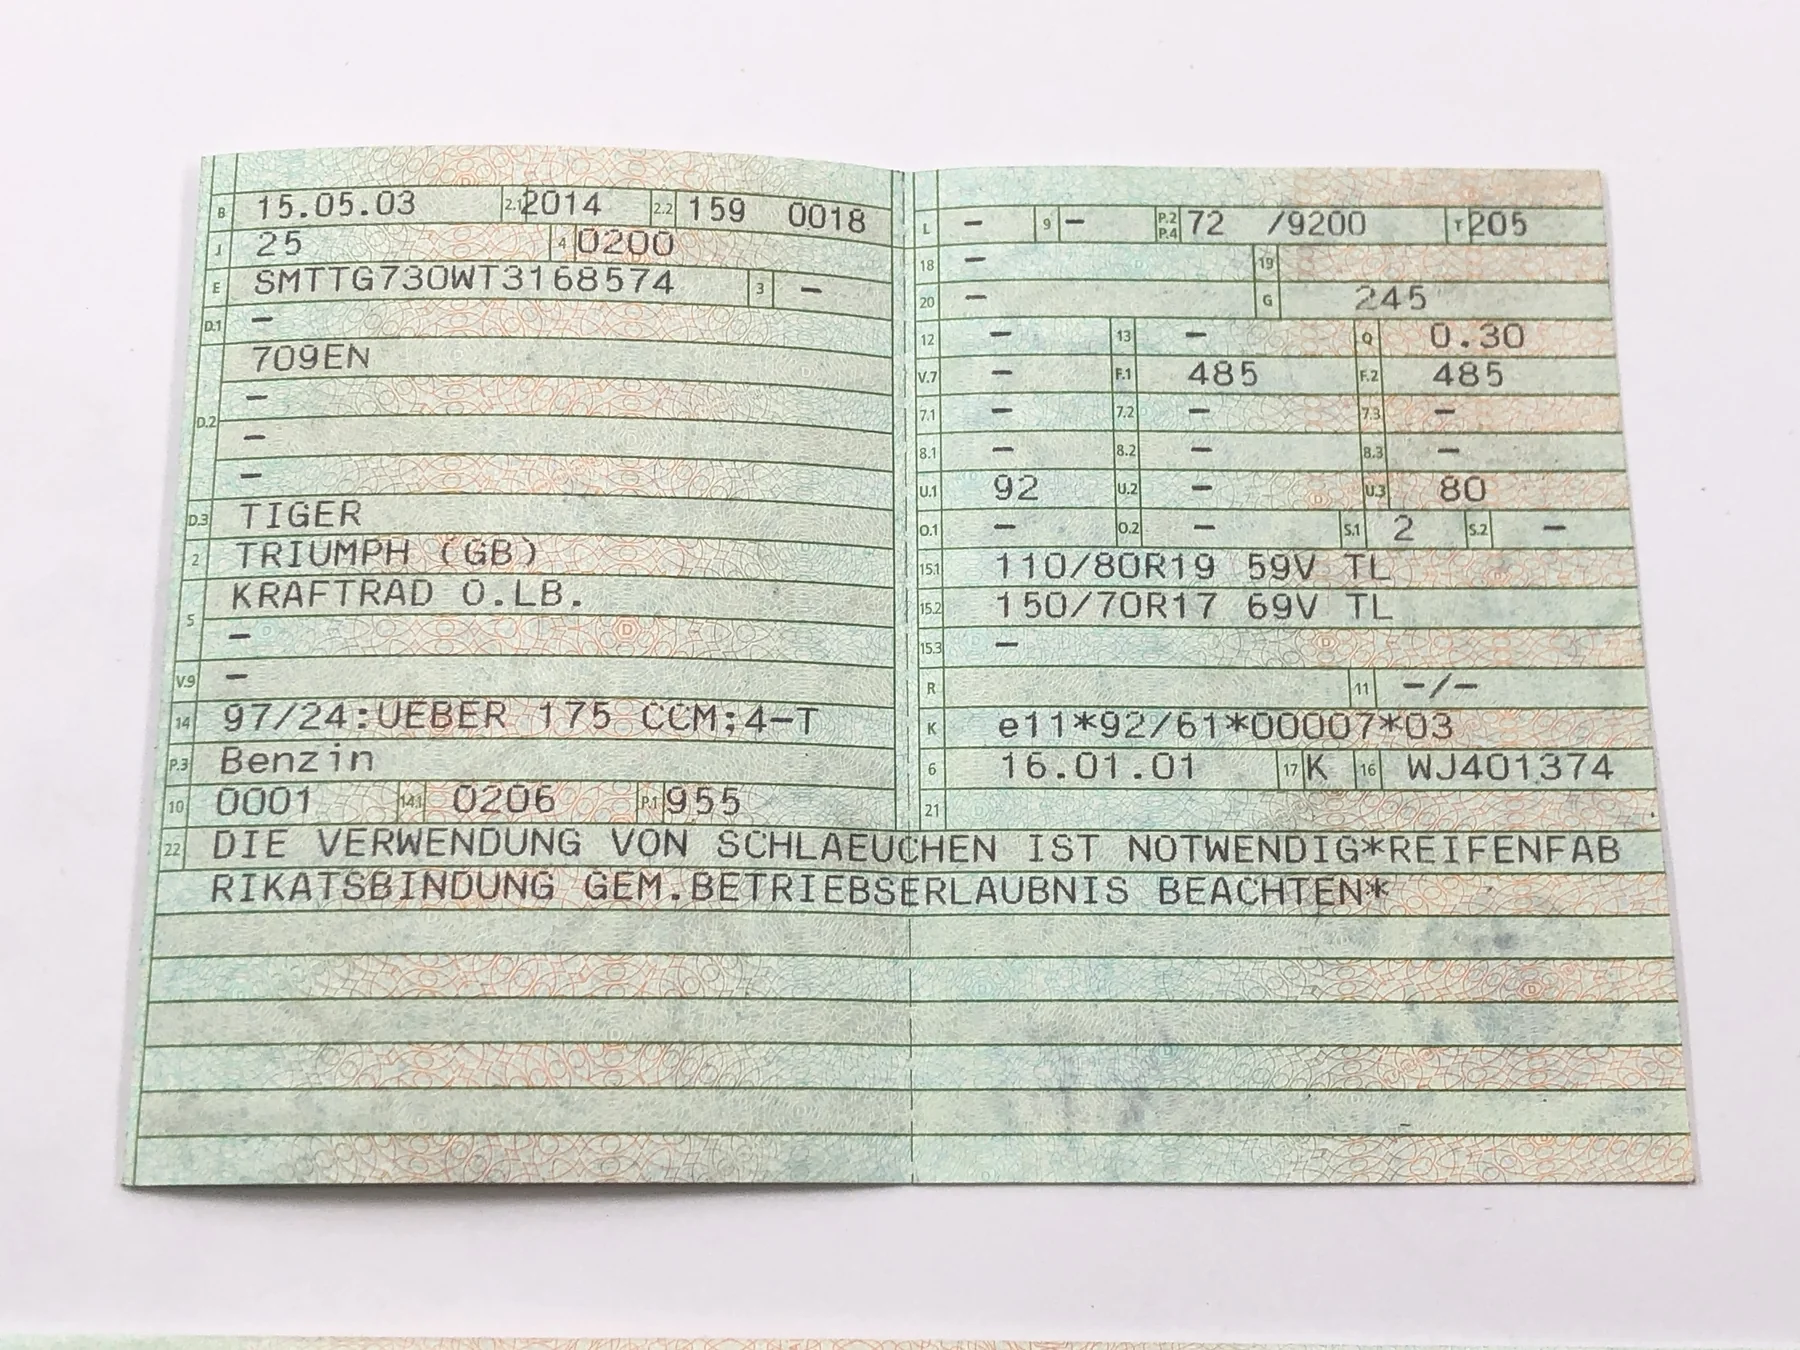 B 15.05.03 2.1 2014 2.2 159 0018
J 25 4 0200
E SMTTG730WT3168574 3 –
D.1 –
709EN
D.2 –
–
–
D.3 TIGER
2 TRIUMPH (GB)
5 KRAFTRAD O.LB.
–
V.9 –
14 97/24:UEBER 175 CCM;4-T
P.3 Benzin
10 0001 14.1 0206 P.1 955
L – 9 – P.2 P.4 72 /9200 T 205
18 – 19
20 – G 245
12 – 13 – Q 0.30
V.7 – F.1 485 F.2 485
7.1 – 7.2 – 7.3 –
8.1 – 8.2 – 8.3 –
U.1 92 U.2 – U.3 80
O.1 – O.2 – S.1 2 S.2 –
15.1 110/80R19 59V TL
15.2 150/70R17 69V TL
15.3 –
R 11 –/–
K e11*92/61*00007*03
6 16.01.01 17 K 16 WJ401374
21
22 DIE VERWENDUNG VON SCHLAEUCHEN IST NOTWENDIG*REIFENFAB
RIKATSBINDUNG GEM.BETRIEBSERLAUBNIS BEACHTEN*